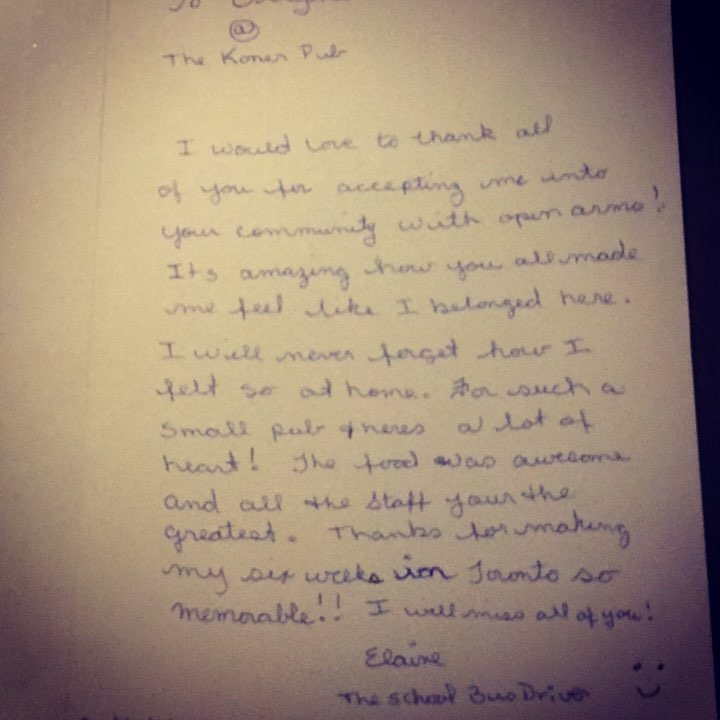 To Everyone
@
The Koner Pub
I would love to thank all
of you for accepting me into
your community with open arms!
Its amazing how you all made
me feel like I belonged here.
I will never forget how I
felt so at home. For such a
small pub theres a lot of
heart! The food was awesome
and all the staff your the
greatest. Thanks for making
my six weeks in Toronto so
memorable!! I will miss all of you!
Elaine
The School Bus Driver